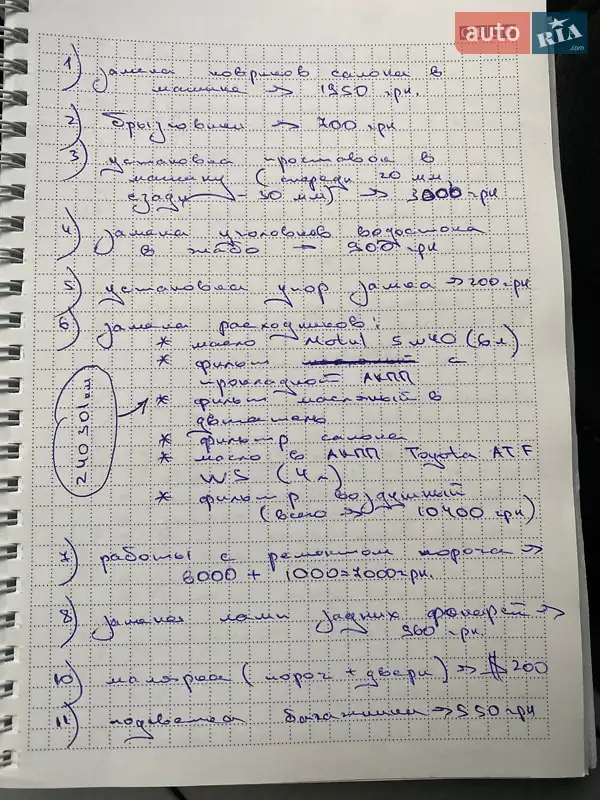 auto RIA .com
1) замена ковриков салона в
машине → 1950 грн.
2) брызговики → 700 грн
3) установка проставок в
машину (спереди 20 мм
сзади – 30 мм) → 3000 грн
4) замена уголовков водостока
в жабо – 900 грн
5) установка упор замка → 200 грн
6) замена расходников:
* масло Motul 5w40 (6л)
* фильтр с
прокладкой АКПП
240301км → * фильт масляный в
двигатель
* фильтр салона
* масло в АКПП Toyota ATF
WS (4л)
* фильтр воздушный
(всего → 10400 грн)
7) работы с ремонтом порога →
6000 + 1000=7000грн.
8) замена ламп задних фонарей →
960 грн.
10) малярка (порог + двери) → $200
11) подсветка багажника → 550 грн